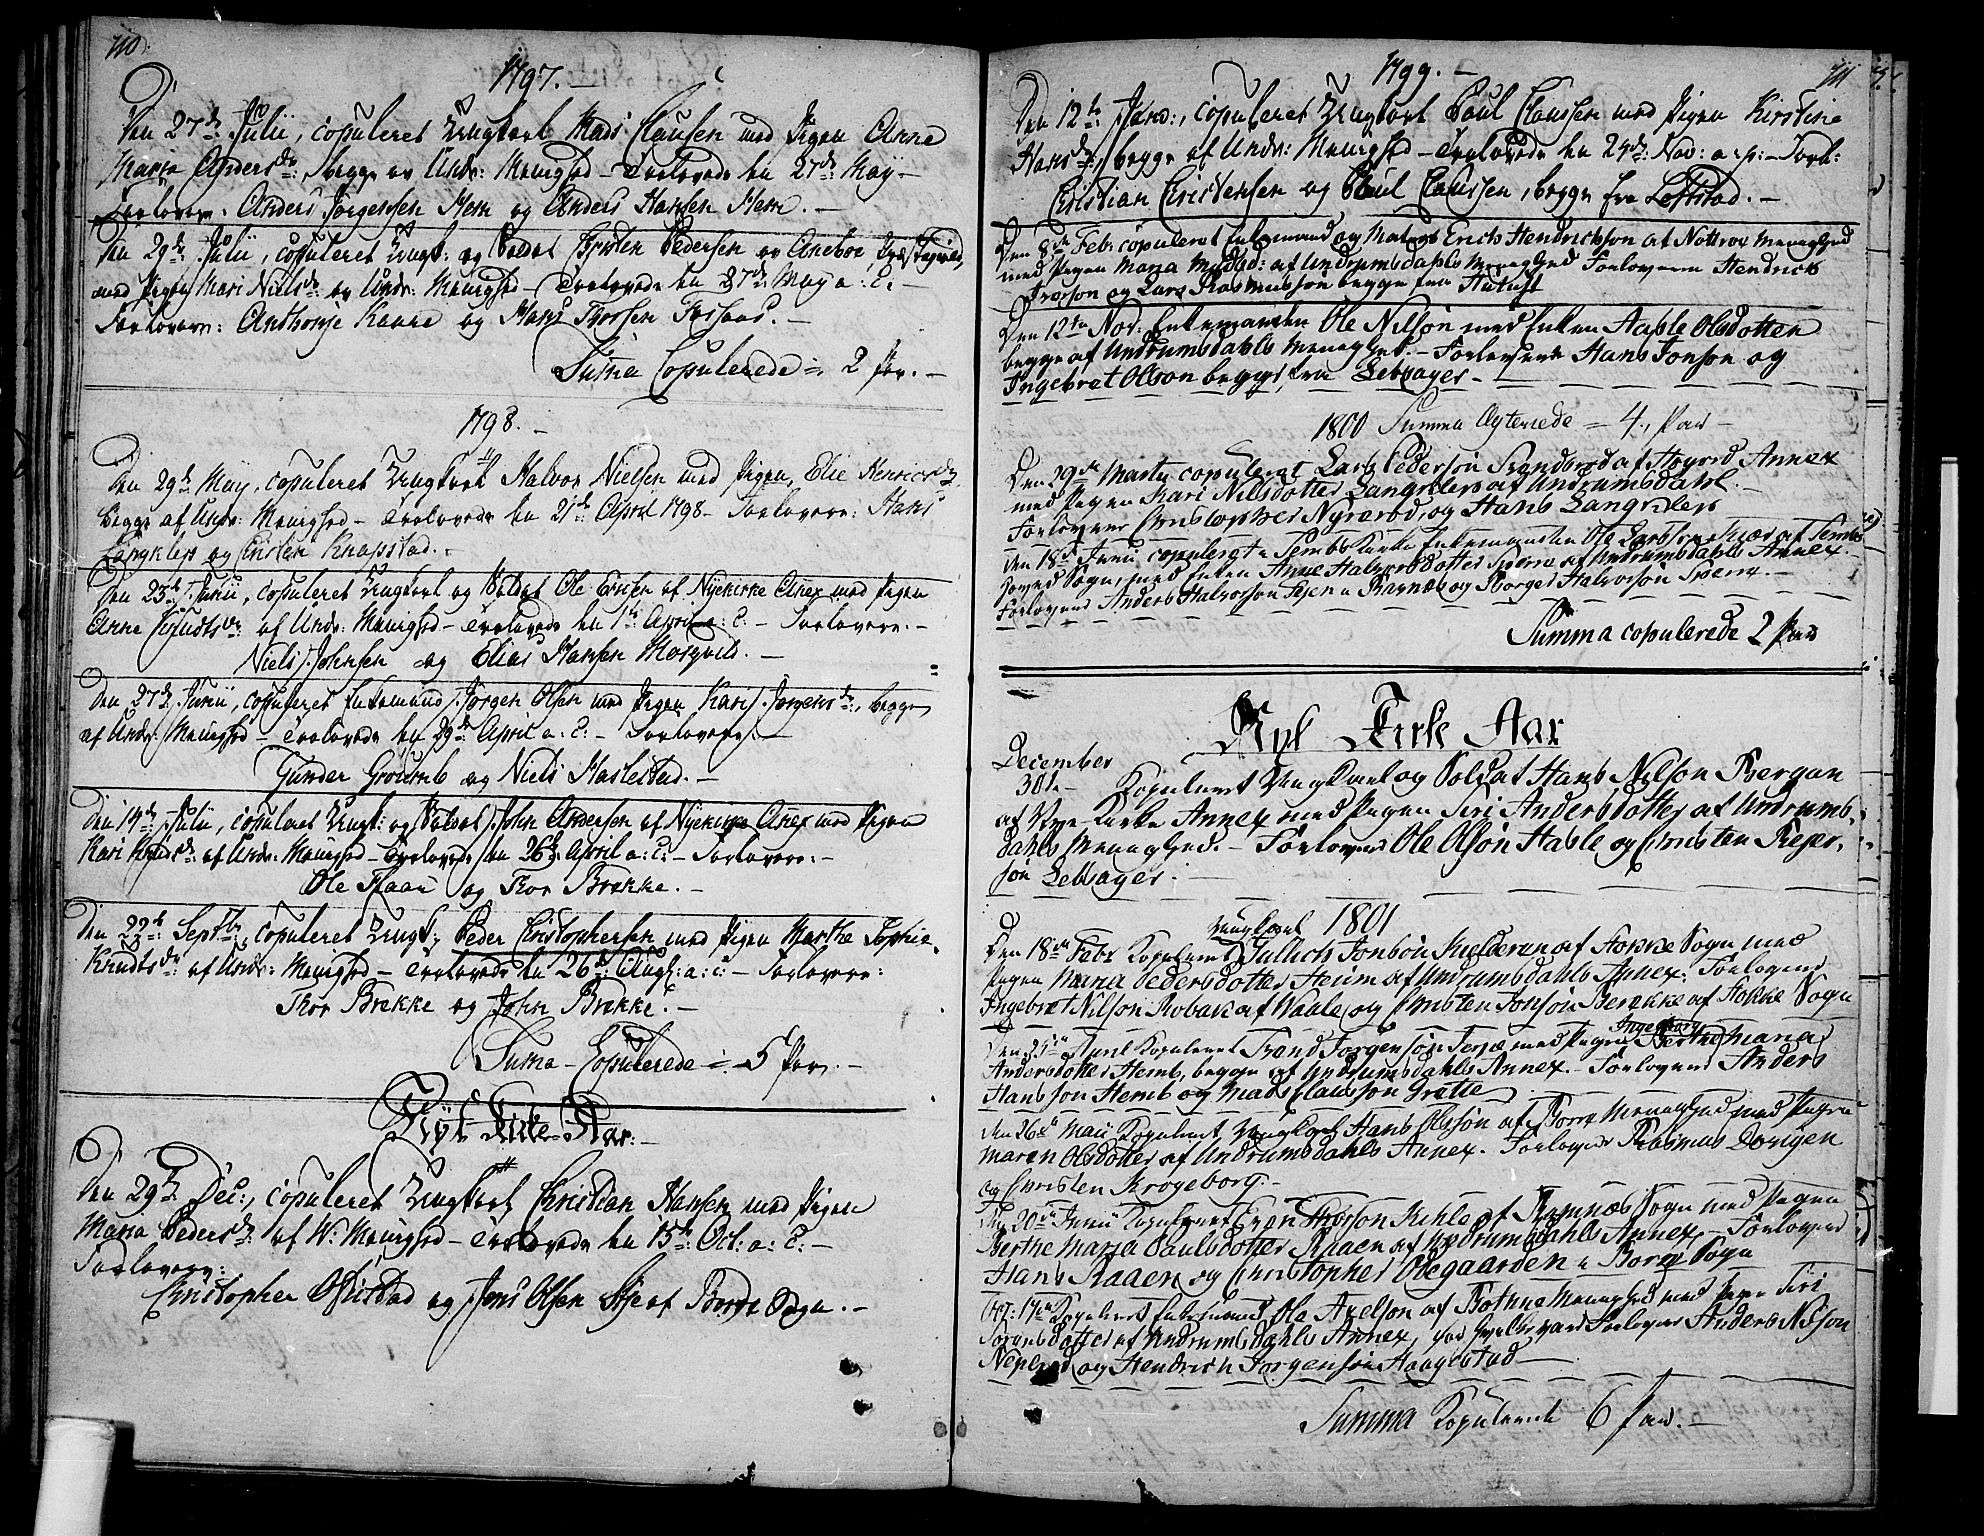 710.
1797.
Den 27de Julii, copuleret Ungkarl Mads Clausen med Pigen Anne
Maria Andersdr: begge av Undr: Menighed – Trolovede den 27de May –
Forlovere: Anders Jørgensen Hem og Anders Hansen Hem. –
Den 29de Julii, copuleret Ungk: og Soldat Christen Pedersen av Aneboe
med Pigen Mari Nielsdr av Undr: Menighed – Trolovede den 27de May a: c: –
Forlovere: Anthonje Kaare og Hans Thorsen
Suma Copulerede = 2 Par. –
1798. –
Den 29de May, copuleret Ungkarl Halvor Nielsen med Pigen, Elie Henricsdr
begge af Undr: Menighed – Trolovede den 21de April 1798 – Forlovere: Hans
Langklep og Christen Knapstad.
Den 25de Junii, copuleret Ungkarl og Soldat Ole Ersen af Nykirke Anex med Pigen
Anne Knudtsdr: af Undr: Menighed – Trolovede den 1te April a: c: – Forlovere. –
Niels Johnsen og Elias Hansen Morqveld. –
Den 27de Junii, copuleret Enkemand Jørgen Olsen med Pigen Kari Jørgensdr:, begge
af Undr: Menighed – Trolovede den 29de April a: c: – Forlovere: –
Gunder Grourub og Niels Haslestad. –
Den 14de Julii, copuleret Ungk: og Soldat John Andersen af Nykirke Anex med Pigen
Kari Knudsdr: af Undr: Menighed – Trolovede den 26de April a: c: – Forlovere: –
Ole Flaae og Thor Brekke. –
Den 22de Septbr, copuleret Ungk: Peder Christophersen med Pigen Marthe Sophie
Knudtsdr: af Undr: Menighed – Trolovede den 26de Augs: a: c: – Forlovere:
Thor Brekke og John Brekke. –
Suma – Copulerede = 5 Par. –
Nyt Kirke Aar. –
Den 29de Dec:, copuleret Ungkarl Christian Hansen med Pigen
Maria Pedersdr: af W: Menighed – Trolovede den 15de Oct: a: c: –
Forlovere:
Christopher Ofstad og Jens Olsen af Borre Sogn. –
711
1799. –
Den 12te Janr:, copuleret Ungkarl Poul Claussen med Pigen Kirstine
Hansdr:, begge af Undr: Menighed – Trolovede den 24de Nov: a: p: – Forl:
Christian Christensen og Poul Claussen, begge fra Lefstad. –
Den 8de Feb: copuleret Enkemand og Erich Hendrichson af Nøtterøe Menighed
med Pigen Maria af Undrumsdahls Menighed Forlovere Hendrich
Iverson og Lars Rasmusson begge fra
Den 12te Nov: Enkemanden Ole Nilsøn med Enken Aaste Olsdotter
begge af Undrumsdahls Menighed. – Forlovere Hans Jonson og
Ingebret Olson begge fra Lebsager. –
1800 Summa Egteviede = 4, Par –
Den 29de Marty copuleret Lars Pederson af Annex
med Pigen Kari Nilsdotter Langklep af Undrumsdahl. –
Forlovere Christopher og Hans Langklep
Den 18de Junii copuleret i Sembs Kirke Enkemanden Ole Larsson af Sembs
hoved Sogn, med Enken Anne Halvorsdotter af Undrumsdahls Annex
Forlovere Anders Halvorson i Ramnes og Borger Halvorson
Summa copulerede 2 Par
Nyt Kirk Aar
December
30te – Kopuleret Ungkarl og Soldat Hans Nilson Bergan
af Nye-Kirke Annex med Pigen Siri Andersdotter af Undrums-
dahls Menighed. – Forlovere Ole Olson Hasle og Christen Rejer-
son Lebsager. –
1801
Ungkarl
Den 18de Febr Kopuleret Tullich Jonson af Stokke Sogn med
Pigen Maria Pedersdotter Heium af Undrumsdahls Annex: Forlovere
Ingebret Nilson Robak af Waale, og Christen Jonson Brække af Stokke Sogn
Ingeborg
Den April Kopuleret Trond Jorgenson med Pigen Berthe Maria
Andersdotter Hemb, begge af Undrumsdahls Annex. – Forlovere Anders
Hansson Hemb og Mads Clausson Grette
Den 26de Maii Kopuleret Ungkarl Hans Olsson af Borre Menighed med Pigen
Maren Olsdotter af Undrumsdahls Annex. Forlovere Rasmus
og Christen Krogeborg. –
Den 20de Junii Kopuleret Even Thorson af Ramnes Sogn med Pigen
Berthe Maria Paulsdotter Raaen af Undrumsdahls Annex – Forlovere
Hans Raaen og Christopher Olegaarden i Borre Sogn
17de Kopuleret Enkemand Ole Axelson af Bothne Menighed med Pigen Siri
Jorgensdotter af Undrumsdahls Annex, for Forlovere Anders Nilson
og Hendrich Jorgenson Haagestad
Summa Kopulerede 6 Par. –